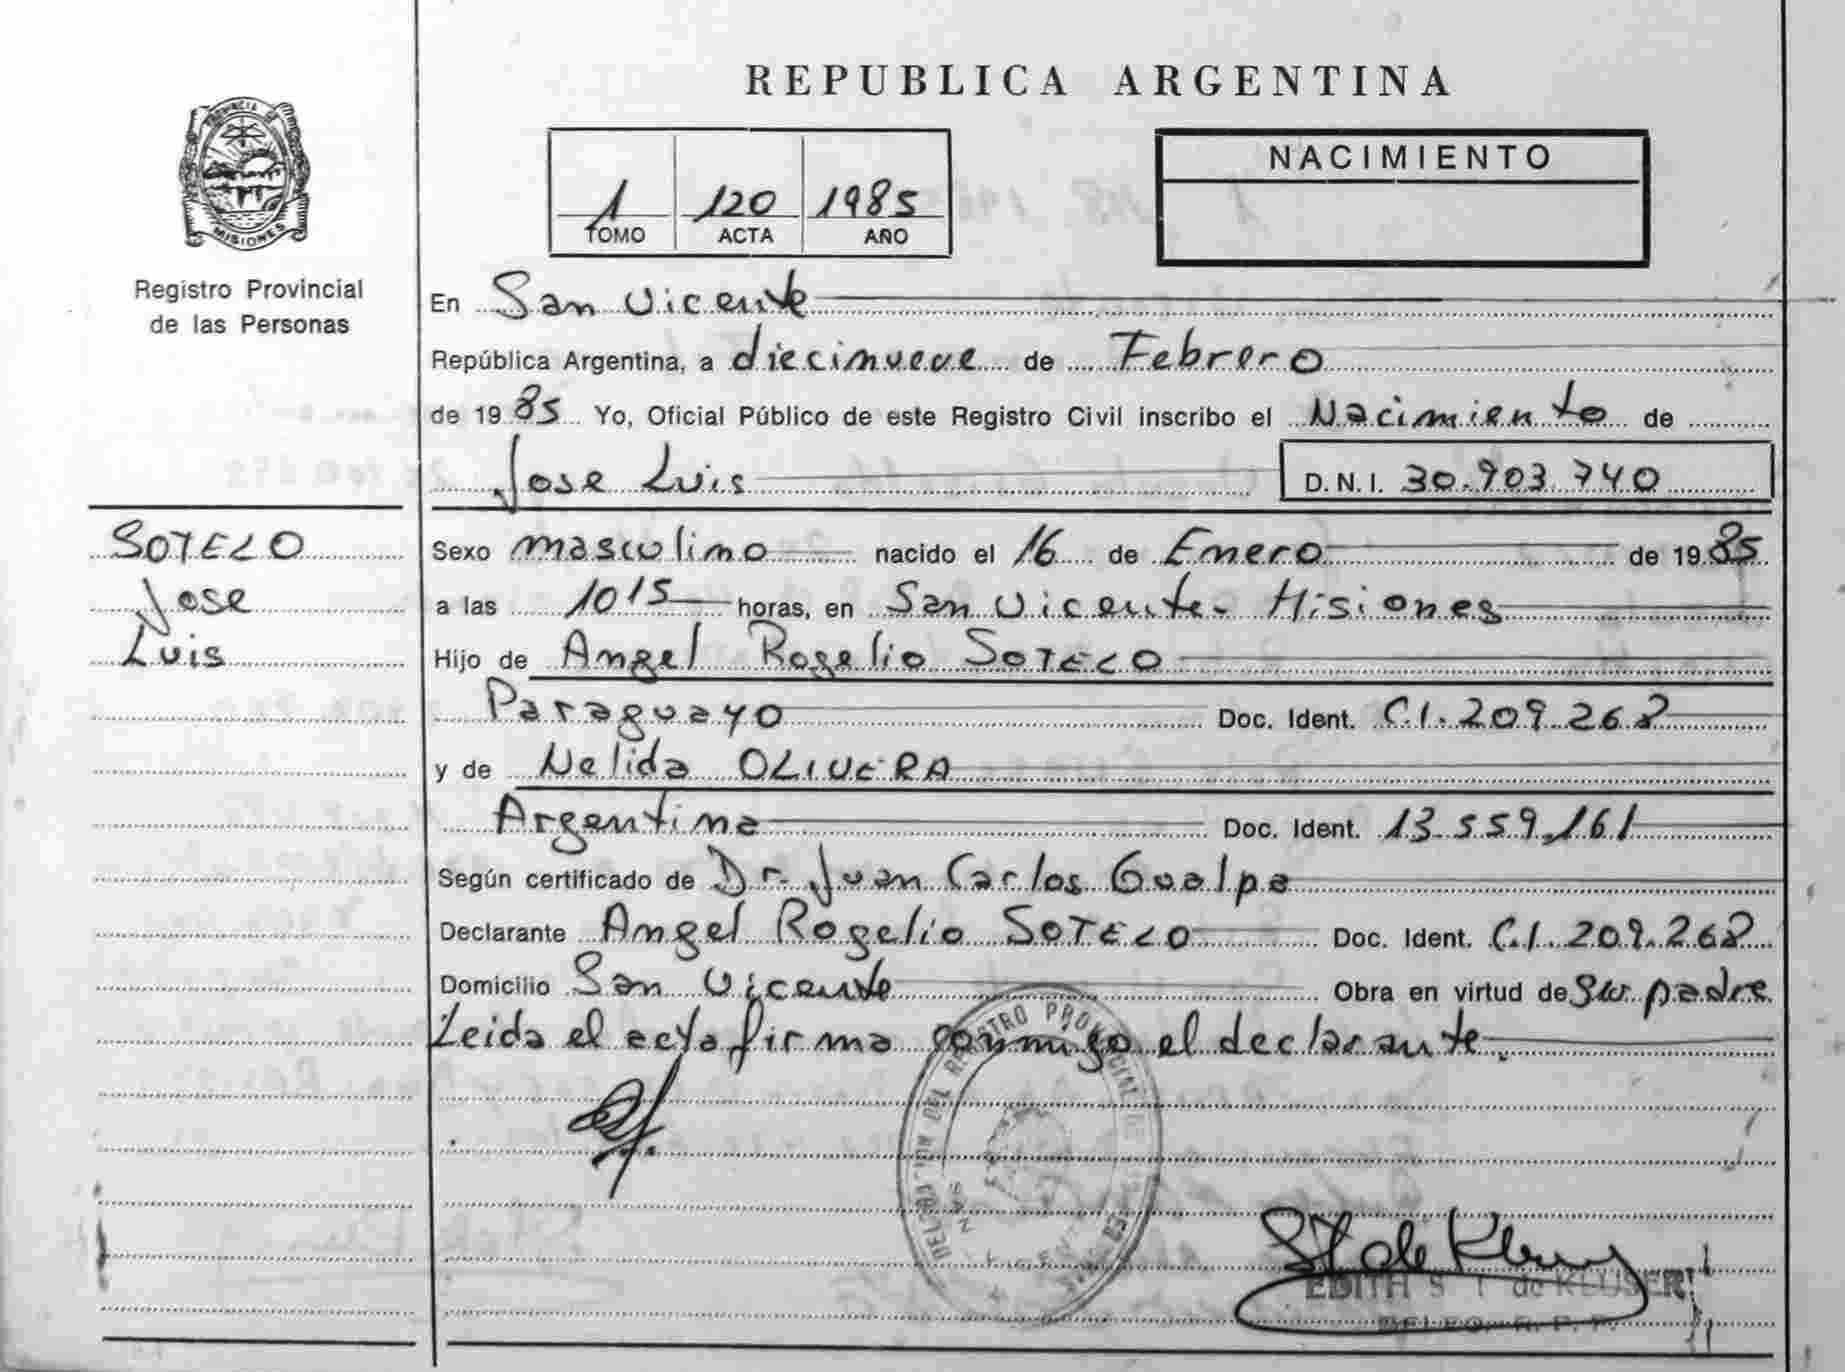 REPUBLICA ARGENTINA
PROVINCIA DE
MISIONES
Registro Provincial
de las Personas
1 120 1985
TOMO ACTA AÑO
NACIMIENTO
En San Vicente
República Argentina, a diecinueve de Febrero
de 1985 Yo, Oficial Público de este Registro Civil inscribo el Nacimiento de
Jose Luis D.N.I. 30.903.740
SOTELO
Jose
Luis
Sexo masculino nacido el 16 de Enero de 1985
a las 1015 horas, en San Vicente- Misiones
Hijo de Angel Rogelio SOTELO
Paraguayo Doc. Ident. C.I. 209.268
y de Nelida OLIVERA
Argentina Doc. Ident. 13.559.161
Según certificado de Dr. Juan Carlos Gualpa
Declarante Angel Rogelio SOTELO Doc. Ident. C.I. 209.268
Domicilio San Vicente Obra en virtud de su padre
Leida el acta firma conmigo el declarante.
DEL REGISTRO PROVINCIAL DE
SAN VICENTE
EDITH S T de KLUSER